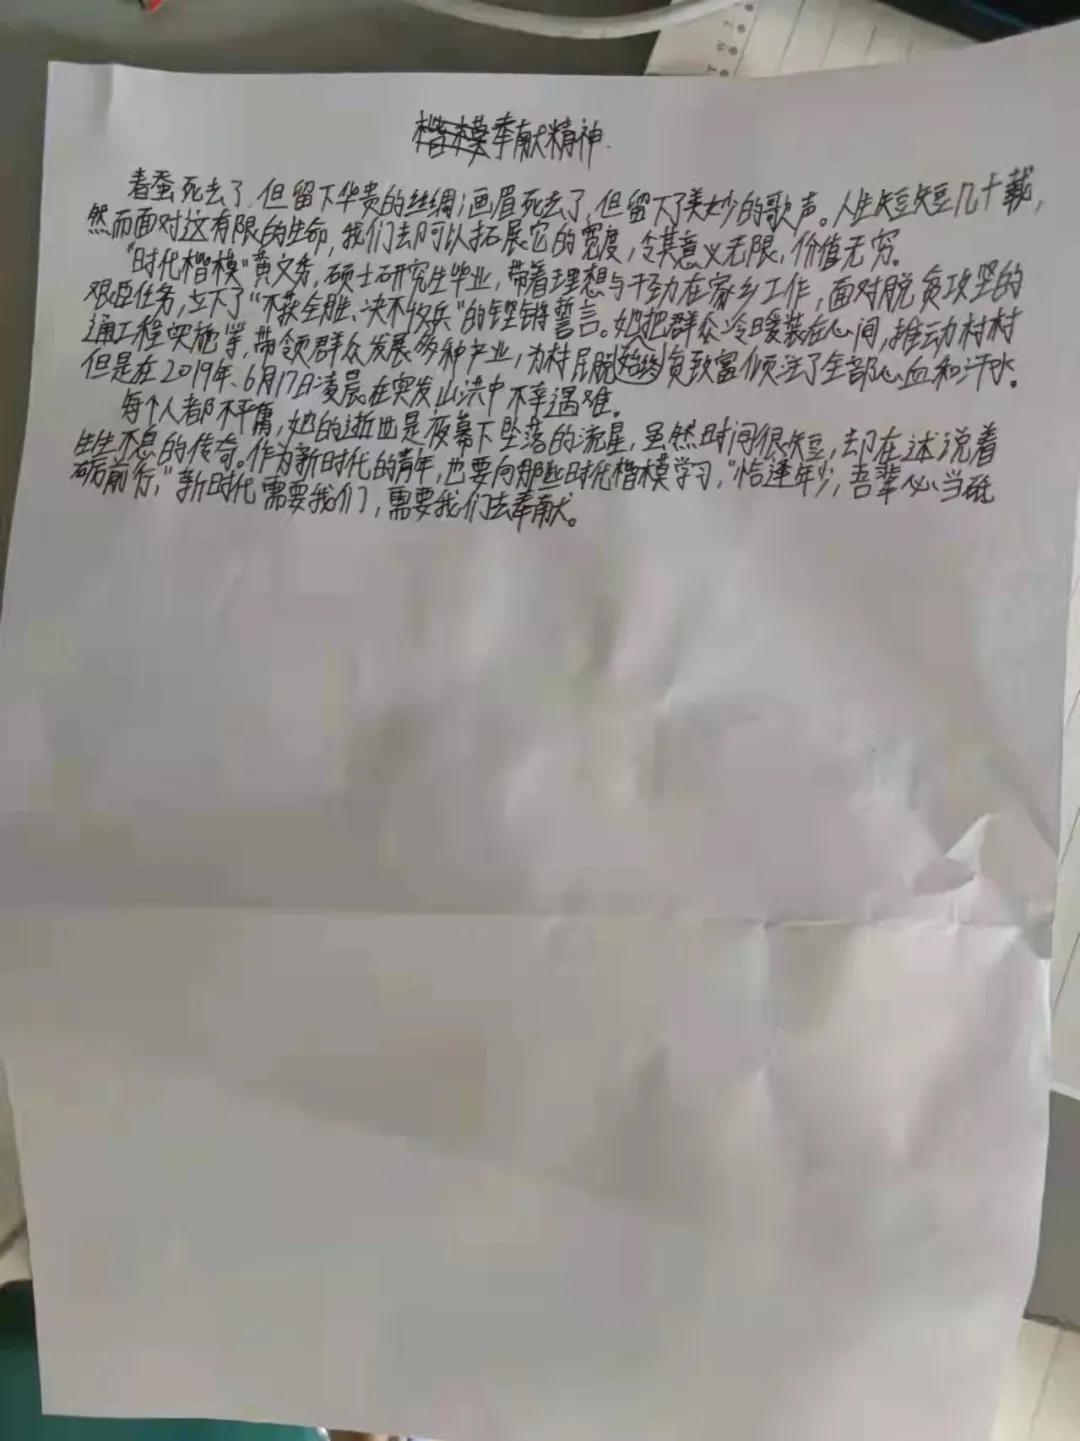 奉献精神.
春蚕死去了,但留下华贵的丝绸;画眉死去了,但留下了美妙的歌声。人生短短几十载,
然而面对这有限的生命,我们却可以拓展它的宽度,令其意义无限,价值无穷。
“时代楷模”黄文秀,硕士研究生毕业,带着理想与干劲在家乡工作,面对脱贫攻坚的
艰巨任务,立下了“不获全胜、决不收兵”的铿锵誓言。她把群众冷暖装在心间,推动村村
通工程实施等,带领群众发展多种产业,为村民脱贫致富倾注了全部心血和汗水。
但是在2019年、6月17日凌晨在突发山洪中不幸遇难。
每个人都不平庸,她的逝世是夜幕下坠落的流星,虽然时间很短,却在述说着
生生不息的传奇。作为新时代的青年,也要向那些时代楷模学习,“恰逢年少,吾辈必当砥
砺前行,”新时代需要我们,需要我们去奉献。